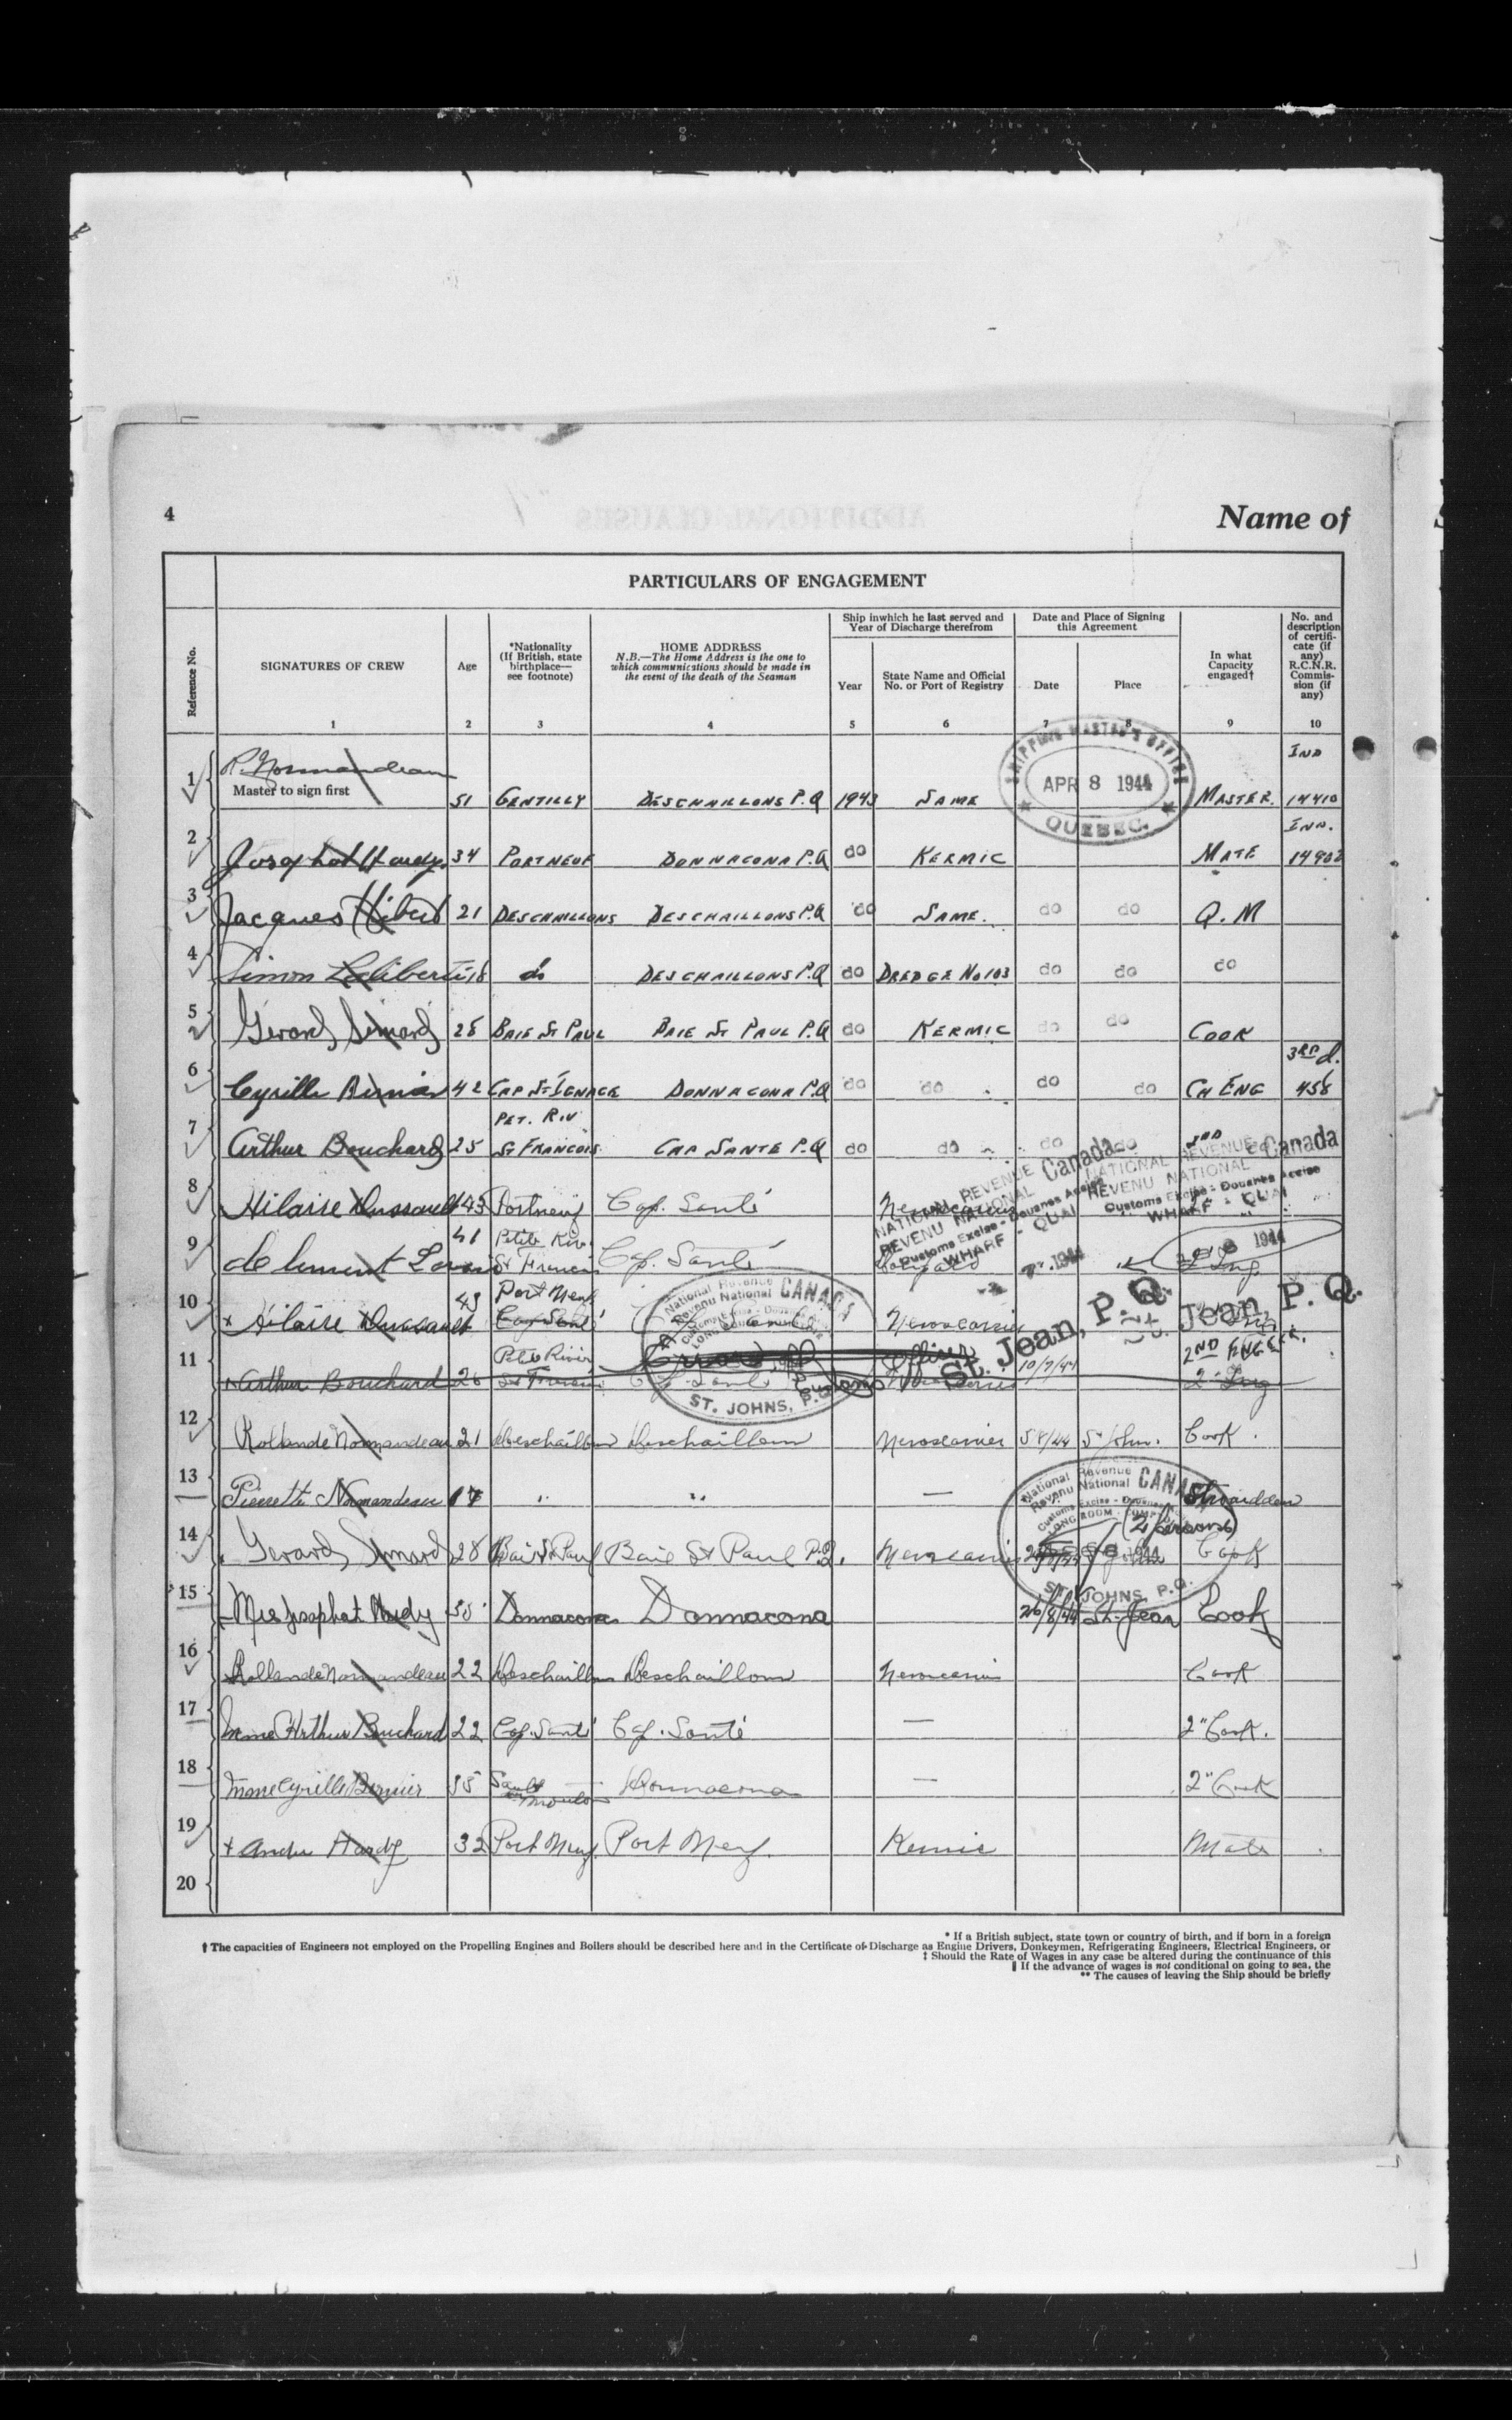 4
Name of
PARTICULARS OF ENGAGEMENT
Reference No.
SIGNATURES OF CREW
Age
*Nationality
(If British, state
birthplace—
see footnote)
HOME ADDRESS
N.B.—The Home Address is the one to
which communications should be made in
the event of the death of the Seaman
Ship inwhich he last served and
Year of Discharge therefrom
Year
State Name and Official
No. or Port of Registry
Date and Place of Signing
this Agreement
Date
Place
In what
Capacity
engaged†
No. and
description
of certifi-
cate (if
any)
R.C.N.R.
Commis-
sion (if
any)
1 2 3 4 5 6 7 8 9 10
SHIPPING MASTER'S OFFICE
APR 8 1944
QUEBEC.
1 R. Normandeau
Master to sign first
51 GENTILLY DESCHAILLONS P.Q 1943 SAME MASTER. IND 14410
2 Josaphat Hardy 34 PORTNEUF DONNACONA P.Q do KERMIC MATE IND. 14902
3 Jacques 21 DESCHAILLONS DESCHAILLONS P.Q do SAME. do do Q.M
4 Simon Laliberté 18 do DESCHAILLONS P.Q do DREDGE No 103 do do do
5 Gerard Simard 28 BAIE ST PAUL BAIE ST PAUL P.Q do KERMIC do do COOK
6 Cyrille Bernier 42 CAP ST IGNACE DONNACONA P.Q do do do do CH ENG 3RD 458
7 Arthur Bouchard 25 PET. RIV ST FRANCOIS CAP SANTE P.Q do do do do 2ND
8 Hilaire Dussault 43 Portneuf Cap. Santé
NATIONAL REVENUE Canada
REVENU NATIONAL
Customs Excise - Douanes Accise
WHARF - QUAI
NATIONAL REVENUE Canada
REVENU NATIONAL
Customs Excise - Douanes Accise
WHARF - QUAI
9 41 Petite Riv. St Francis Cap. Santé 1944 1944
10 Hilaire Dussault 43 Port Neuf Cap Santé
St. Jean, P. Q.
St. Jean, P. Q.
National Revenue CANADA
Revenu National
ST. JOHNS, P.Q.
11 Arthur Bouchard 26 Petite River St Francis Cap. Santé Customs Officer 10/7/44 2ND 2" Eng
12 Rollande Normandeau 21 Deschaillons Deschaillons 5/8/44 St John. Cook.
13 Pierrette Normandeau 17 " " —
National Revenue CANADA
Revenu National
Customs Excise - Douanes
LONG ROOM
1944
ST. JOHNS, P.Q.
14 Gerard Simard 28 Baie St Paul Baie St Paul P.Q. Cook
15 Mrs Josaphat Hardy Donnacona Donnacona 26/8/44 St-Jean Cook
16 Rollande Normandeau 22 Deschaillons Deschaillons Cook
17 Mme Arthur Bouchard 22 Cap. Santé Cap. Santé — 2" Cook.
18 Mme Cyrille Bernier 35 Sault au Mouton Donnacona — 2" Cook
19 Hardy 32 Port Neuf Port Neuf. Kermic Mate
20
* If a British subject, state town or country of birth, and if born in a foreign
† The capacities of Engineers not employed on the Propelling Engines and Boilers should be described here and in the Certificate of Discharge as Engine Drivers, Donkeymen, Refrigerating Engineers, Electrical Engineers, or
‡ Should the Rate of Wages in any case be altered during the continuance of this
‖ If the advance of wages is not conditional on going to sea, the
** The causes of leaving the Ship should be briefly